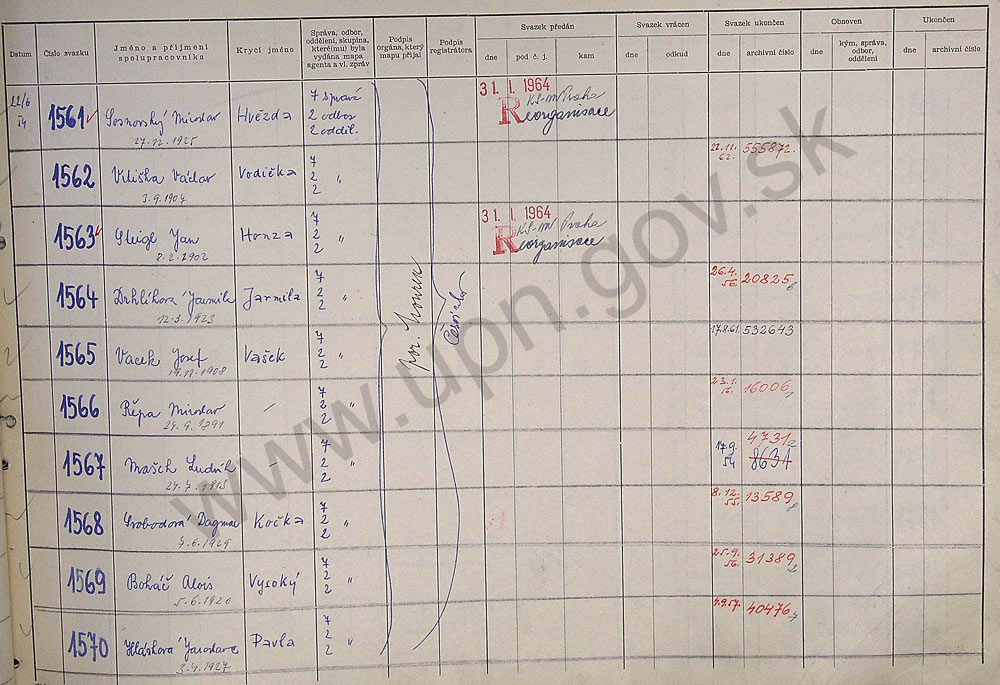 Datum
Číslo svazku
Jméno a příjmení
spolupracovníka
Krycí jméno
Správa, odbor,
oddělení, skupina,
které(mu) byla
vydána mapa
agenta a vl. zpráv
Podpis
orgána, který
mapu přijal
Podpis
registrátora
Svazek předán
dne
pod č. j.
kam
Svazek vrácen
dne
odkud
Svazek ukončen
dne
archivní číslo
Obnoven
dne
kým, správa,
odbor,
oddělení
Ukončen
dne
archivní číslo
22/6
54
1561
Sosnovský Miroslav
27.12.1925
Hvězda
7 správ
2 odbor
2 odděl.
31. 1. 1964
KS-MV Praha
Reorganisace
1562
Václav
3.9.1907
Vodička
7
2 "
2
22.11.
62.
555872
1563
Šteigl Jan
8.2.1902
Honza
7
2 "
2
31. 1. 1964
KS-MV Praha
Reorganisace
1564
Drhlíková Jarmila
12.3.1923
Jarmila
7
2 "
2
26.4.
56.
20825
6
1565
Vacek Josef
19.11.1908
Vašek
7
2 "
2
17.8.61
532643
1566
Řépa Miroslav
24.9.1891
-
7
2 "
2
23.1.
16006
1
1567
Mašek Ludvík
24.7.1915
-
7
2 "
2
17.9.
54
4731
2
8631
1568
Svobodová Dagmar
7.6.1929
Kočka
7
2 "
2
8.12.
55.
13589
8
1569
Boháč Alois
5.6.1920
Vysoký
7
2 "
2
25.9.
56.
31389
2
1570
Jaroslava
3.4.1927
Pavla
7
2 "
2
4.9.57.
40476
7
por.
www.upn.gov.sk